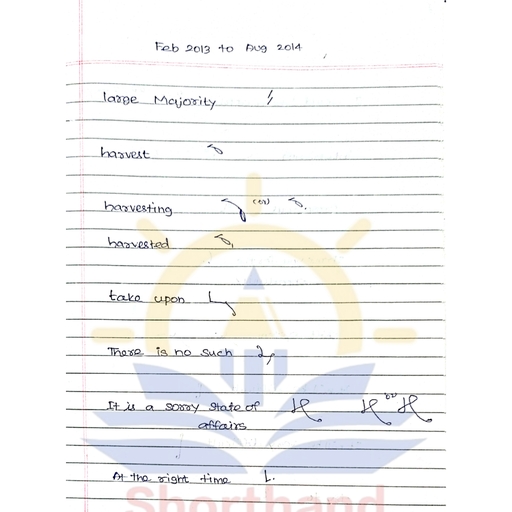 Feb 2013 to Aug 2014
large Majority
harvest
harvesting (or)
harvested
take upon
There is no such
It is a sorry state of (or)
affairs
At the right time
Shorthand